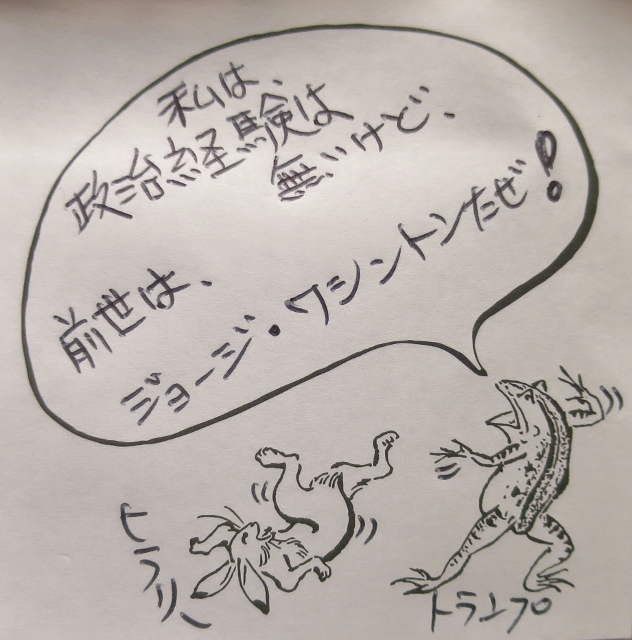 私は、
政治経験は
無いけど、
前世は、
ジョージ・ワシントンだぜ!
トランプ